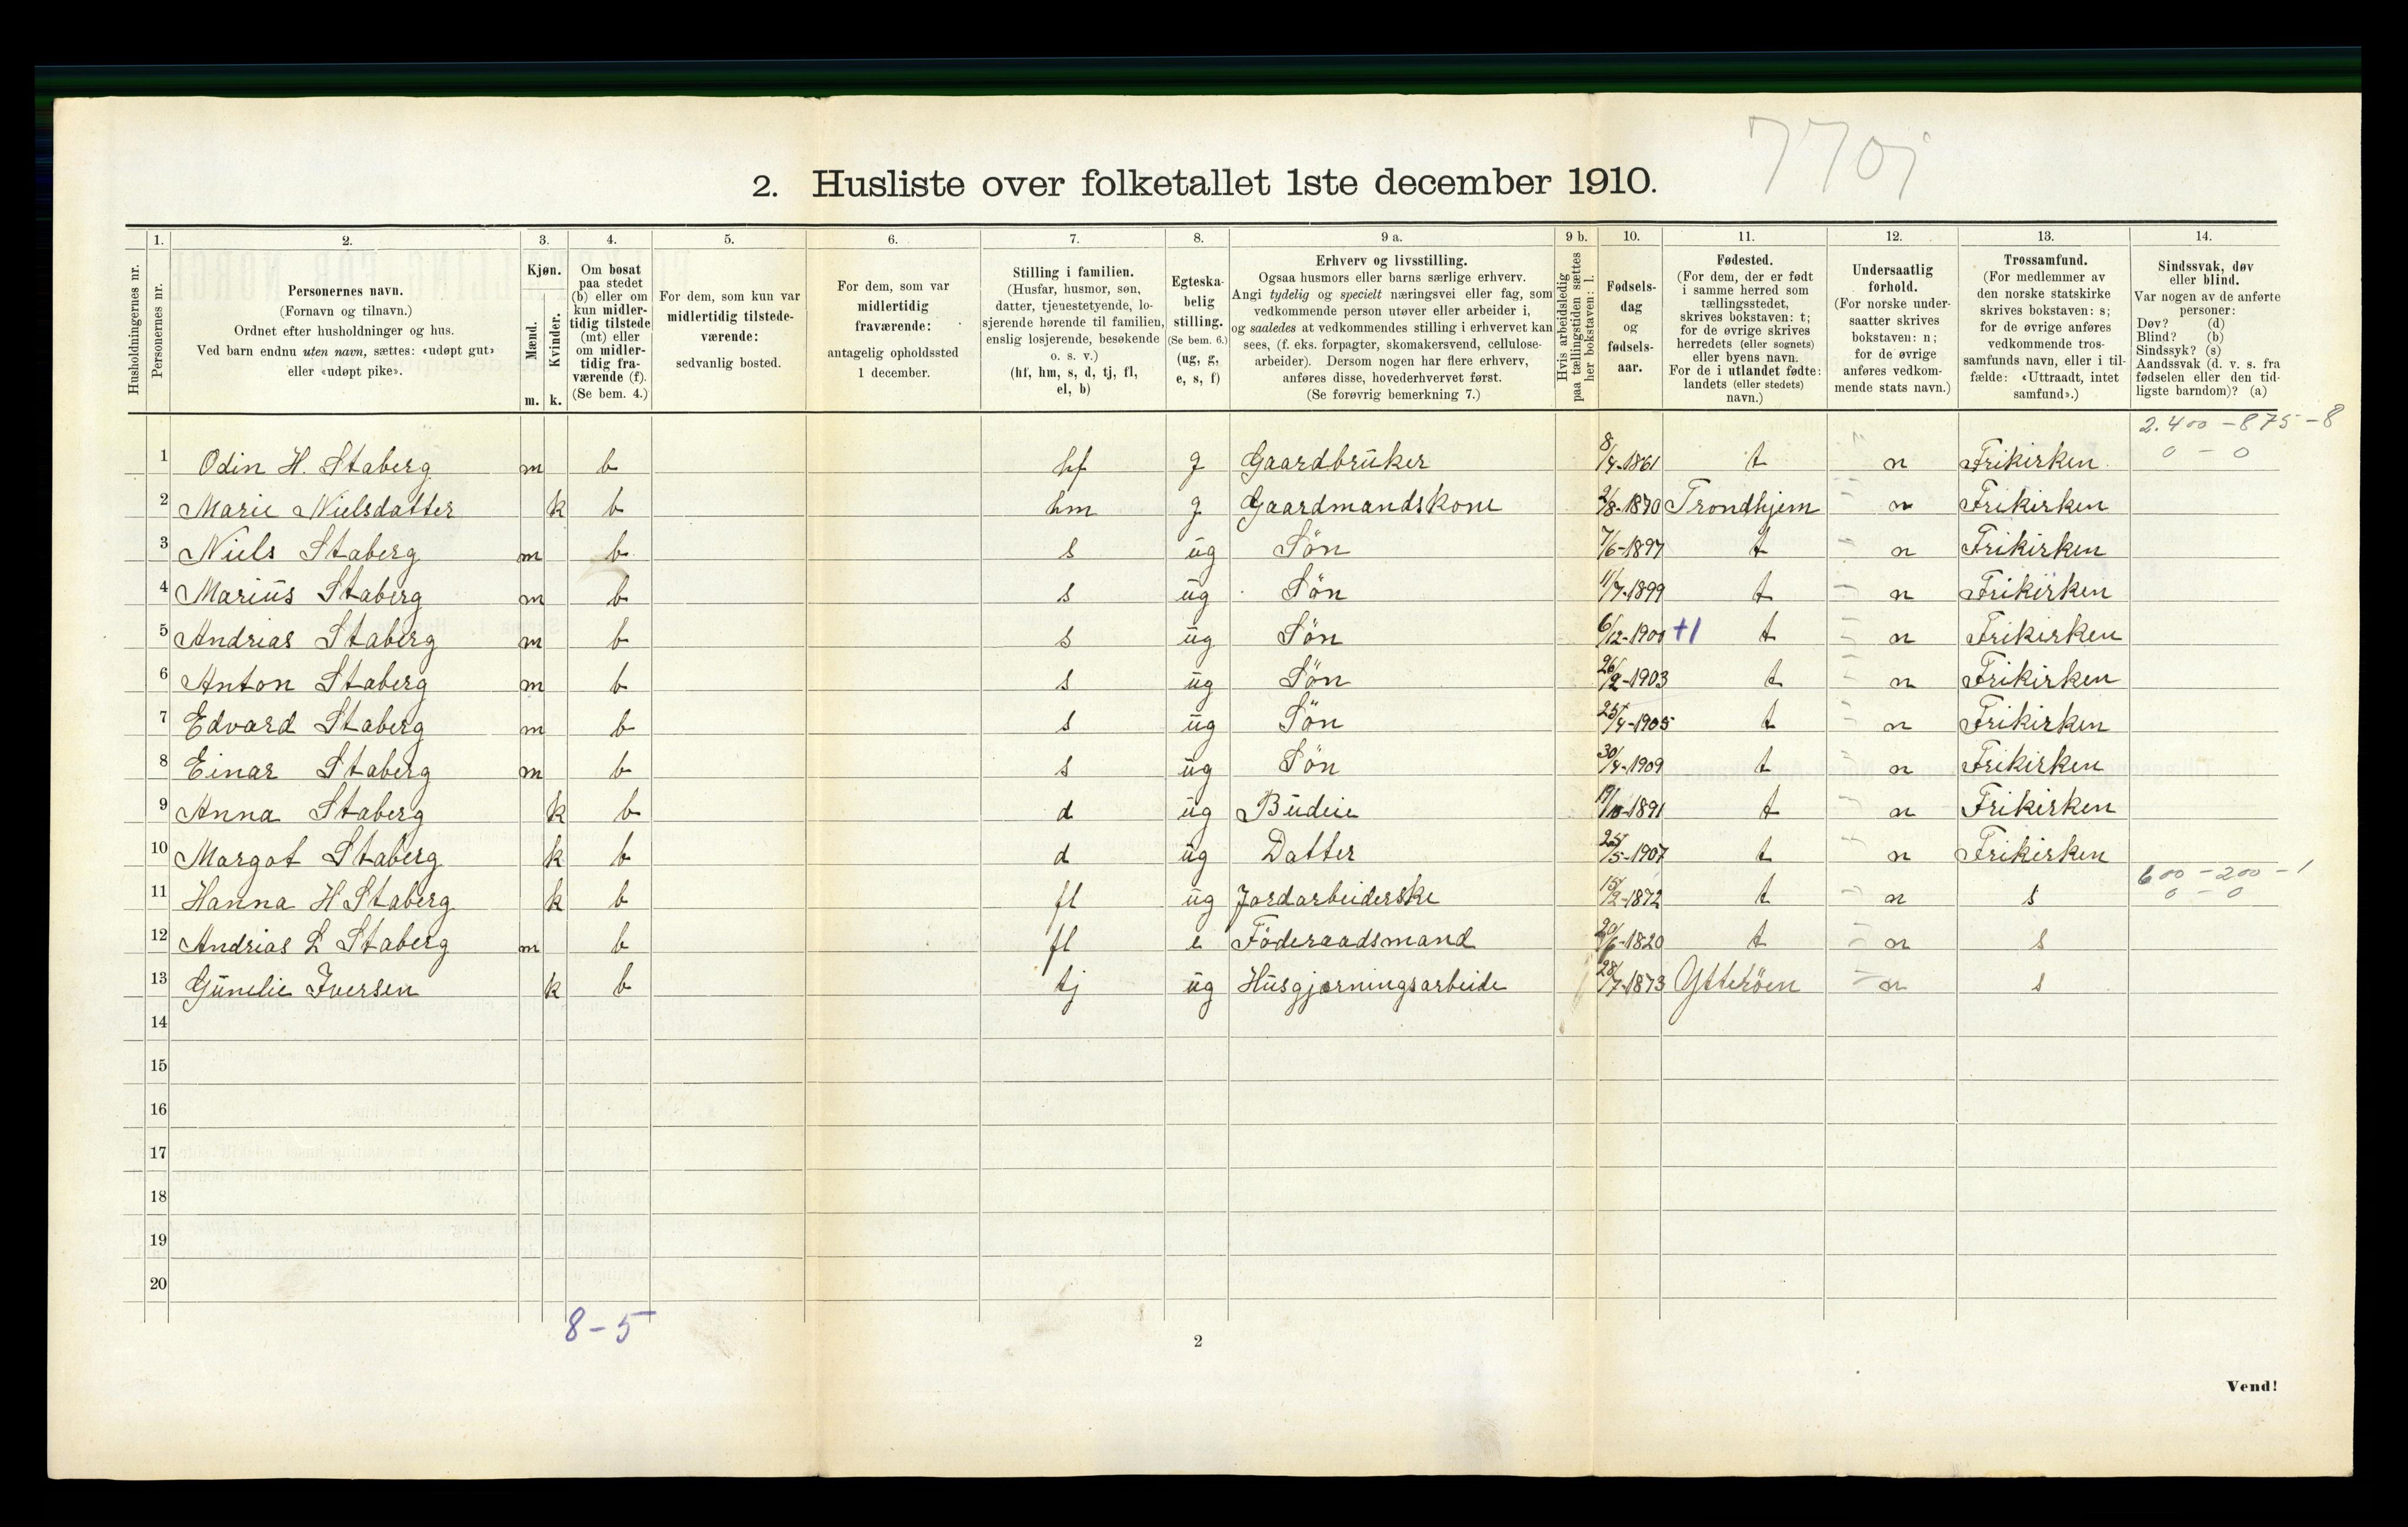 770j
2. Husliste over folketallet 1ste december 1910.
Husholdningernes nr.
1. Personernes nr.
2. Personernes navn. (Fornavn og tilnavn.) Ordnet efter husholdninger og hus. Ved barn endnu uten navn, sættes: «udøpt gut» eller «udøpt pike».
3. Kjøn. Mænd. m. Kvinder. k.
4. Om bosat paa stedet (b) eller om kun midlertidig tilstede (mt) eller om midlertidig fraværende (f). (Se bem. 4.)
5. For dem, som kun var midlertidig tilstedeværende: sedvanlig bosted.
6. For dem, som var midlertidig fraværende: antagelig opholdssted 1 december.
7. Stilling i familien. (Husfar, husmor, søn, datter, tjenestetyende, losjerende hørende til familien, enslig losjerende, besøkende o. s. v.) (hf, hm, s, d, tj, fl, el, b)
8. Egteskabelig stilling. (Se bem. 6.) (ug, g, e, s, f)
9 a. Erhverv og livsstilling. Ogsaa husmors eller barns særlige erhverv. Angi tydelig og specielt næringsvei eller fag, som vedkommende person utøver eller arbeider i, og saaledes at vedkommendes stilling i erhvervet kan sees, (f. eks. forpagter, skomakersvend, cellulosearbeider). Dersom nogen har flere erhverv, anføres disse, hovederhvervet først. (Se forøvrig bemerkning 7.)
9 b. Hvis arbeidsledig paa tællingstiden sættes her bokstaven: l.
10. Fødselsdag og fødselsaar.
11. Fødested. (For dem, der er født i samme herred som tællingsstedet, skrives bokstaven: t; for de øvrige skrives herredets (eller sognets) eller byens navn. For de i utlandet fødte: landets (eller stedets) navn.)
12. Undersaatlig forhold. (For norske undersaatter skrives bokstaven: n; for de øvrige anføres vedkommende stats navn.)
13. Trossamfund. (For medlemmer av den norske statskirke skrives bokstaven: s; for de øvrige anføres vedkommende trossamfunds navn, eller i tilfælde: «Uttraadt, intet samfund».)
14. Sindssvak, døv eller blind. Var nogen av de anførte personer: Døv? (d) Blind? (b) Sindssyk? (s) Aandssvak (d. v. s. fra fødselen eller den tidligste barndom)? (a)
2.400 - 875 - 8
1 Odin H. Staberg m b hf g Gaardbruker 8/4-1861 t n Frikirken 0 - 0
2 Marie Nielsdatter k b hm g Gaardmandskone 2/8-1870 Trondhjem n Frikirken
3 Niels Staberg m b s ug Sön 7/6-1897 t n Frikirken
4 Marius Staberg m b s ug Sön 11/7-1899 t n Frikirken
5 Andrias Staberg m b s ug Sön 6/12-1900 +1 t n Frikirken
6 Anton Staberg m b s ug Sön 26/2-1903 t n Frikirken
7 Edvard Staberg m b s ug Sön 25/4-1905 t n Frikirken
8 Einar Staberg m b s ug Sön 30/4-1909 t n Frikirken
9 Anna Staberg k b d ug Budeie 19/10-1891 t n Frikirken
10 Margot Staberg k b d ug Datter 25/5-1907 t n Frikirken
600 - 200 - 1
11 Hanna H Staberg k b fl ug Jordarbeiderske 15/2-1872 t n s 0 - 0
12 Andrias L Staberg m b fl e Föderaadsmand 20/6-1820 t n s
13 Gunelie Iversen k b tj ug Husgjerningsarbeide 28/7-1873 Ytteröen n s
14
15
16
17
18
19
20
8 - 5
2
Vend!